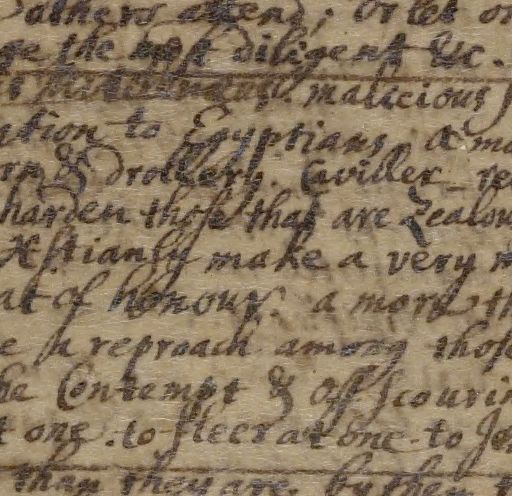 others attend; or let on
ge the most diligent &c.
malicious
ution to Egyptians. a mo
& drollery. Caviller_ re
harden those that are Zealou
Xstianly make a very
at of honour. a more th
e a reproach among those
he Contempt & Off scourin
t one. to fleer at one. to Je
than they are.